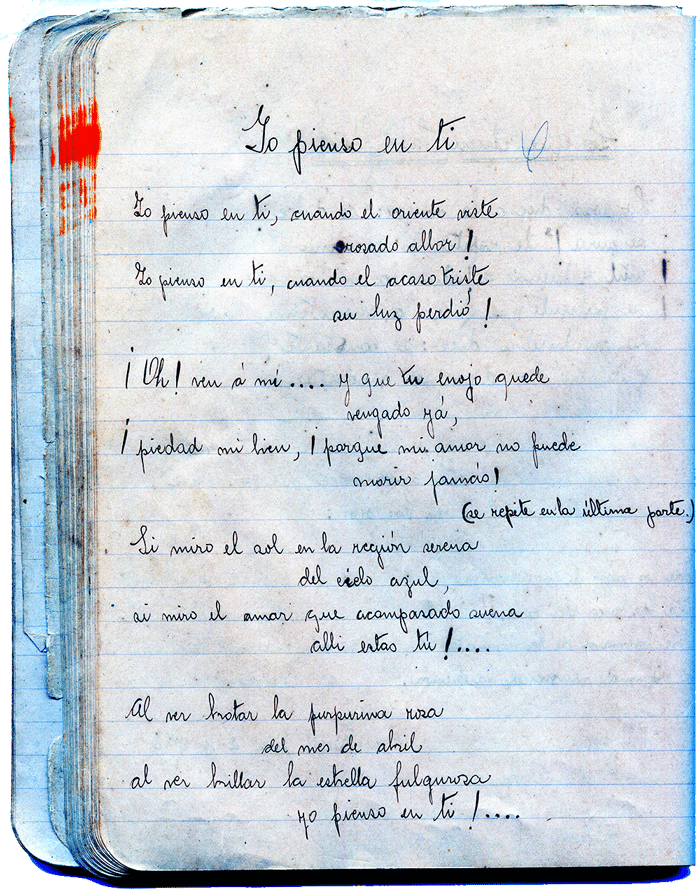 Yo pienso en ti
Yo pienso en ti, cuando el oriente viste
rosado albor!
Yo pienso en ti, cuando el acaso triste
su luz perdió!
¡Oh! ven á mi.... y que tu enojo quede
vengado yá,
¡piedad mi bien, ¡porque mi amor no puede
morir jamás!
(se repite en la última parte.)
Si miro el sol en la región serena
del cielo azul,
si miro el amar que acompasado suena
alli estas tú!....
Al ver brotar la purpurina rosa
del mes de abril
al ver brillar la estrella fulgurosa
yo pienso en ti!....